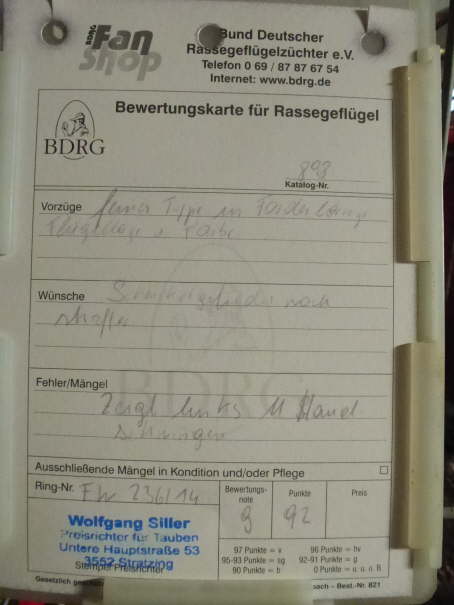 BDRG Fan Shop
Bund Deutscher
Rassegeflügelzüchter e.V.
Telefon 0 69 / 87 87 67 54
Internet: www.bdrg.de
BDRG
Bewertungskarte für Rassegeflügel
893
Katalog-Nr.
Vorzüge feiner Type in
Farbe
Wünsche noch
Fehler/Mängel
Zeigt links
Ausschließende Mängel in Kondition und/oder Pflege
Ring-Nr. 236/14
Bewertungs-note Punkte Preis
g 92
Wolfgang Siller
Preisrichter für Tauben
Untere Hauptstraße 53
3552 Stratzing
Stempel Preisrichter
97 Punkte = v 96 Punkte = hv
95-93 Punkte = sg 92-91 Punkte = g
90 Punkte = b 0 Punkte = u. o. B
Gesetzlich Best.-Nr. 821